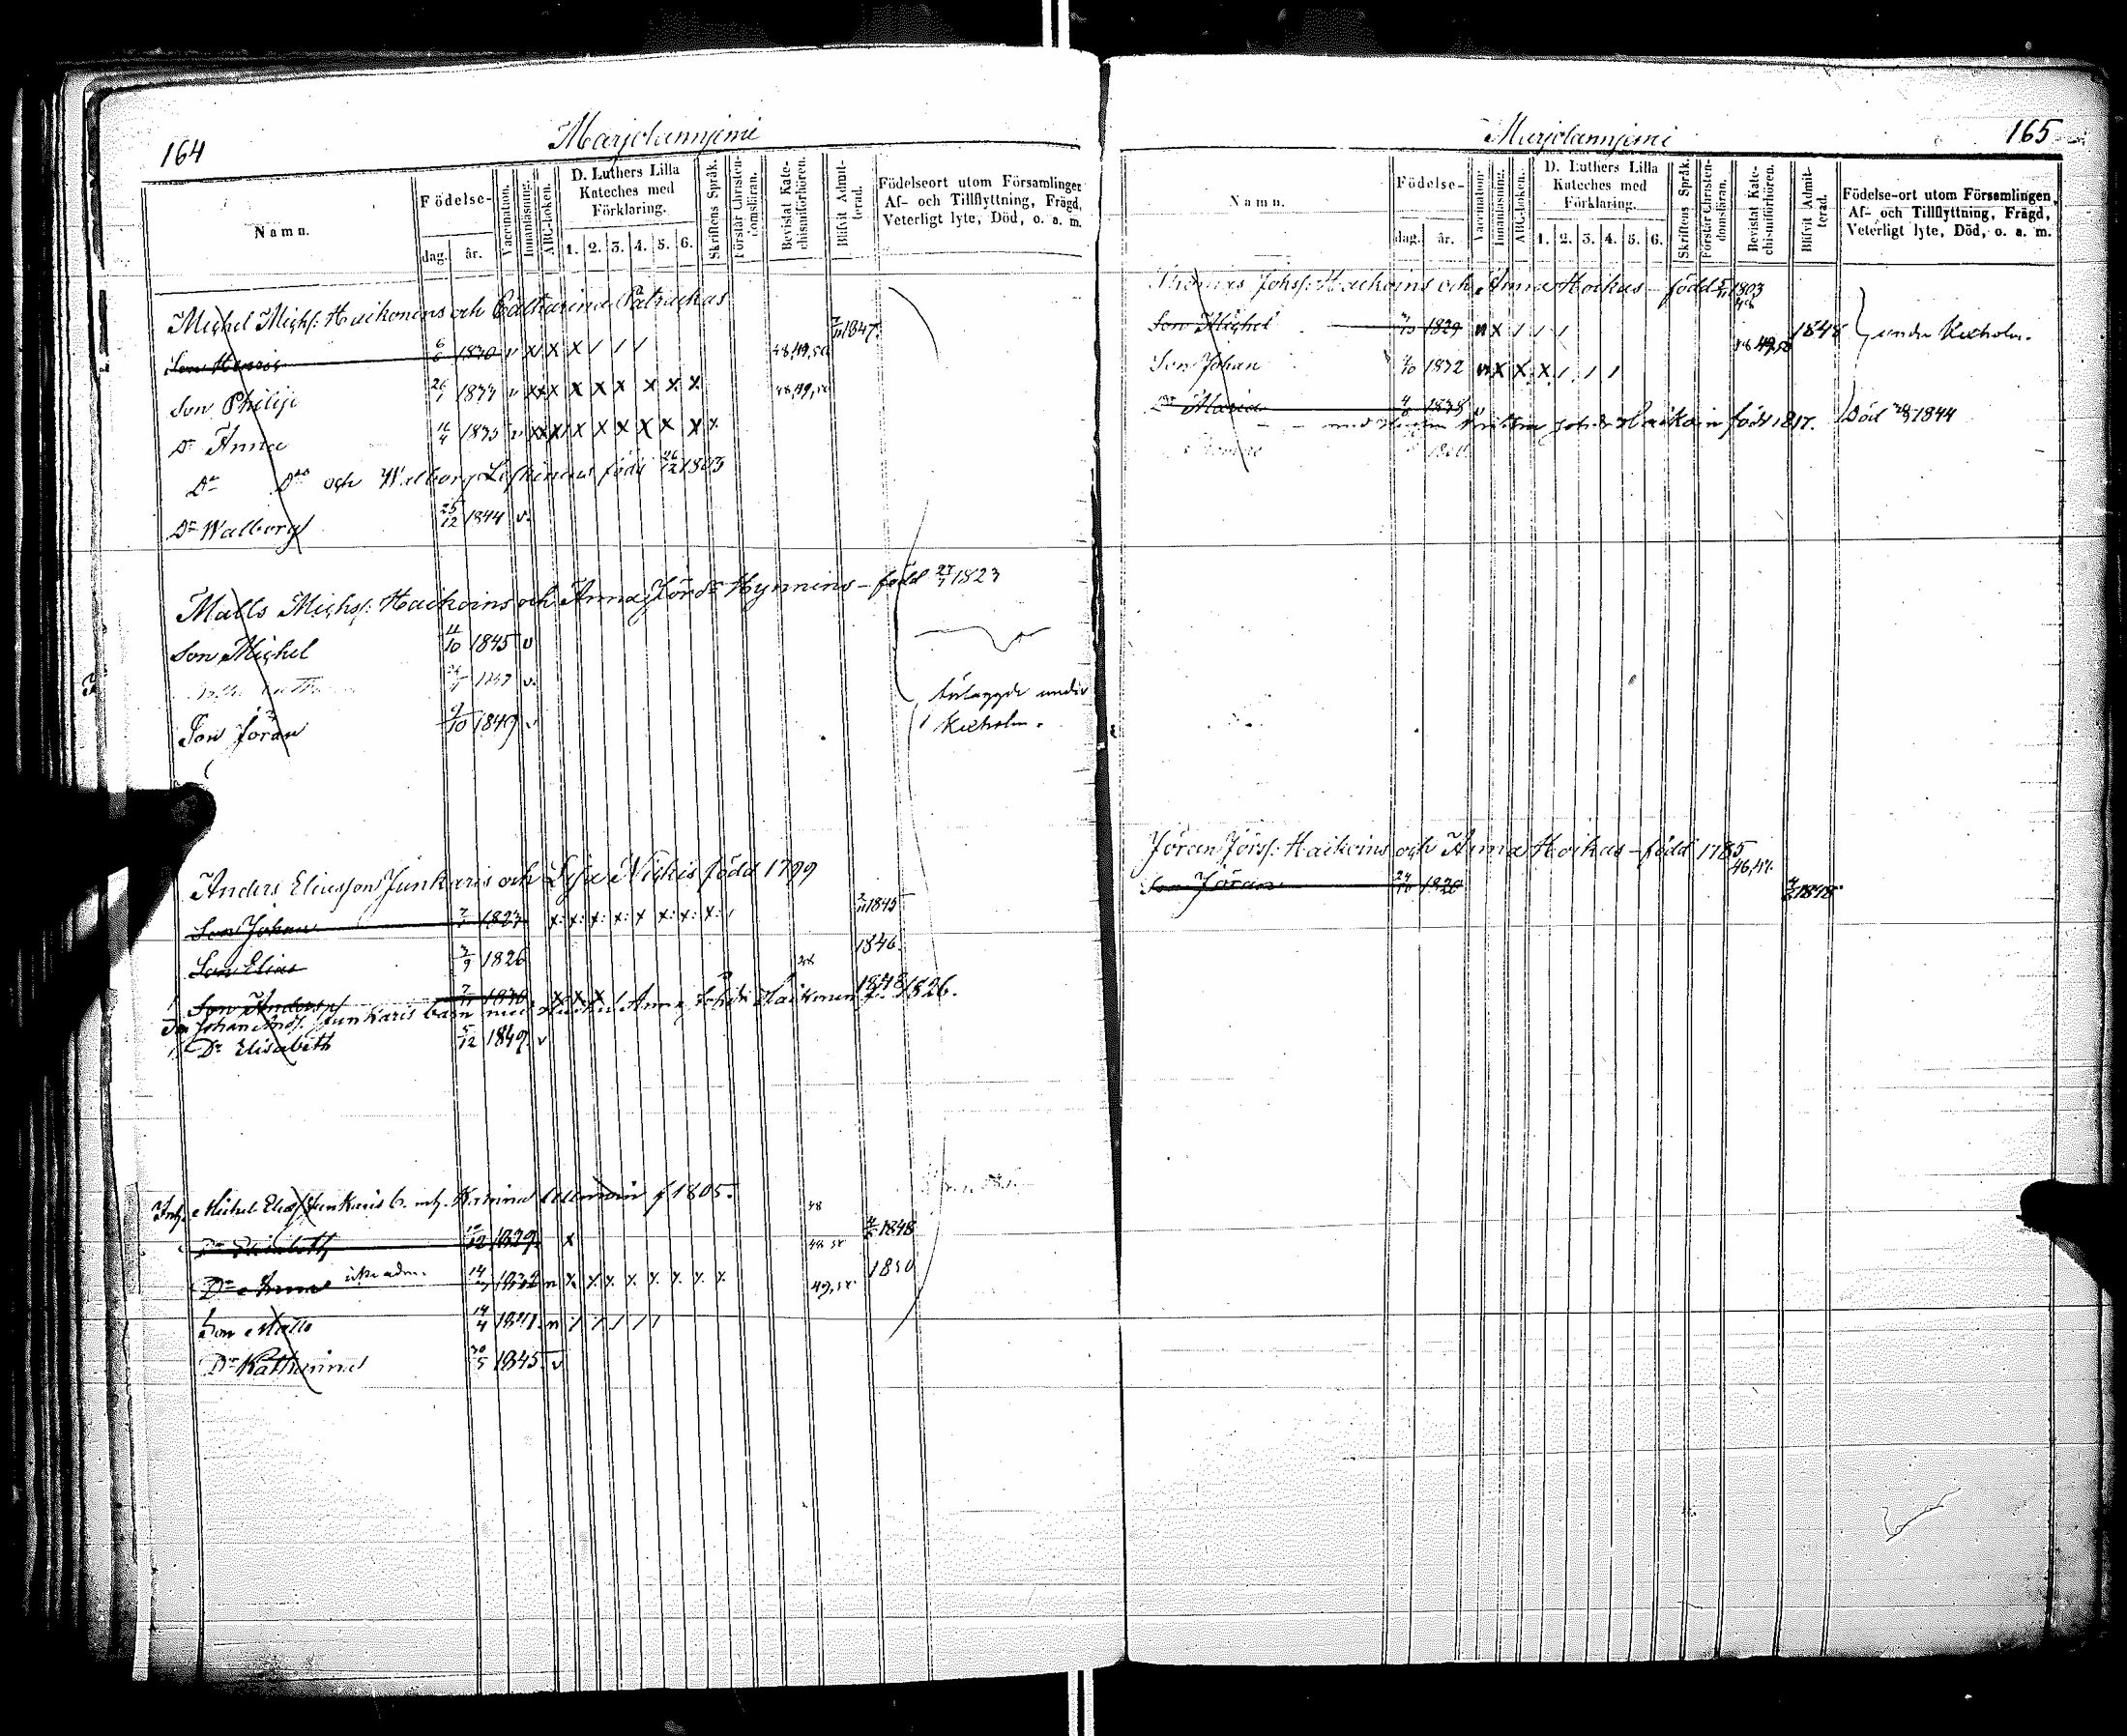 164
Marjolanniemi
Namn.
Födelse-
dag.
år.
Vaccination.
Innanläsning.
ABC-boken.
D. Luthers Lilla
Kateches med
Förklaring.
1. 2. 3. 4. 5. 6.
Skriftens Språk.
Förstår Christen-
domsläran.
Bevistat Kate-
chismiförhören.
Blifvit Admit-
terad.
Födelseort utom Församlingen
Af- och Tillflyttning, Frägd,
Veterligt lyte, Död, o. a. m.
Michel Michs: Haikonens och Catharina Patrackas
Son Henric 6/6 1830 v x x x / / / 48,49,50 1847.
Son Philip 26/1 1833 v x x x x x x x x x 48,49,50
Dr Anna 16/4 1835 v x x x x x x x x x
Dr Do och Walborg Leskinens född 26/12 1803
Dr Walborg 25/12 1844 v.
Matts Michs: Haikoins och Anna Jörsdr Hynnins - född 27/7 1823
Son Michel 11/10 1845 v
1847 v.
Son Jöran 9/10 1849 v
under
Kexholm.
Anders Eliassons Junkaris och Lisa Nickis född 1799
Son Johan 1823 x: x: x: x: x x: x: x: / 1845
Son Elias 3/9 1826 1846.
Son Anders 1830 x x x / 1848
Johan Ands. Junkaris barn med Hustru Anna Johsdr Haikonen f. 1826.
Dr Elisabeth 5/12 1849. v
Inh. Michel Elias Junkaris b. m. f 1805. 48
Dr Elisabeth 12 1829. x 1848
Dr Anna icke adm. 14 1832 n x x x x x x x x 49,50 1850
Son Matts 14/4 1841. n / / / / /
Dr Katharina 30/5 1845 v
165
Marjolanniemi
Namn.
Födelse-
dag.
år.
Vaccination.
Innanläsning.
ABC-boken.
D. Luthers Lilla
Kateches med
Förklaring.
1. 2. 3. 4. 5. 6.
Skriftens Språk.
Förstår Christen-
domsläran.
Bevistat Kate-
chismiförhören.
Blifvit Admit-
terad.
Födelse-ort utom Församlingen,
Af- och Tillflyttning, Frägd,
Veterligt lyte, Död, o. a. m.
Thomas Johss: Haikoins och Anna Hoikas - född 1803
Son Michel 1829 x / / / 1848
under Kexholm.
Son Johan 1832 x x x / / / 48,49,50
Dr Maria 1838 Död 1844
med Johsdr Haikoin född 1817.
Jöran Jörss: Haikoins och Anna Hoikas - född 1785
Son Jöran 24/10 1820 46,47. 1848